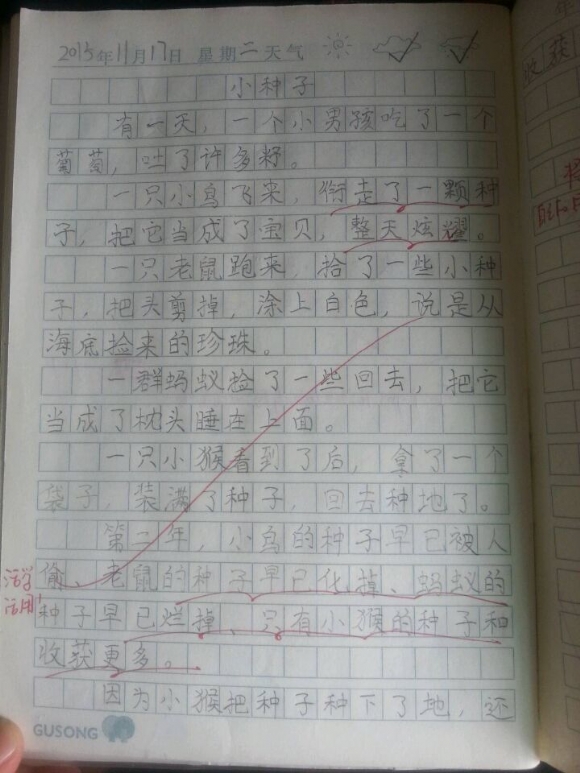 2015年11月17日 星期二 天气
小种子
有一天，一个小男孩吃了一个
葡萄，吐了许多籽。
一只小鸟飞来，衔走了一颗种
子，把它当成了宝贝，整天炫耀。
一只老鼠跑来，拾了一些小种
子，把头剪掉，涂上白色，说是从
海底捡来的珍珠。
一群蚂蚁捡了一些回去，把它
当成了枕头睡在上面。
一只小猴看到了后，拿了一个
袋子，装满了种子，回去种地了。
第二年，小鸟的种子早已被人
偷、老鼠的种子早已化掉、蚂蚁的
种子早已烂掉、只有小猴的种子和
收获更多。
因为小猴把种子种下了地，还
活学
活用！
GUSONG
收获